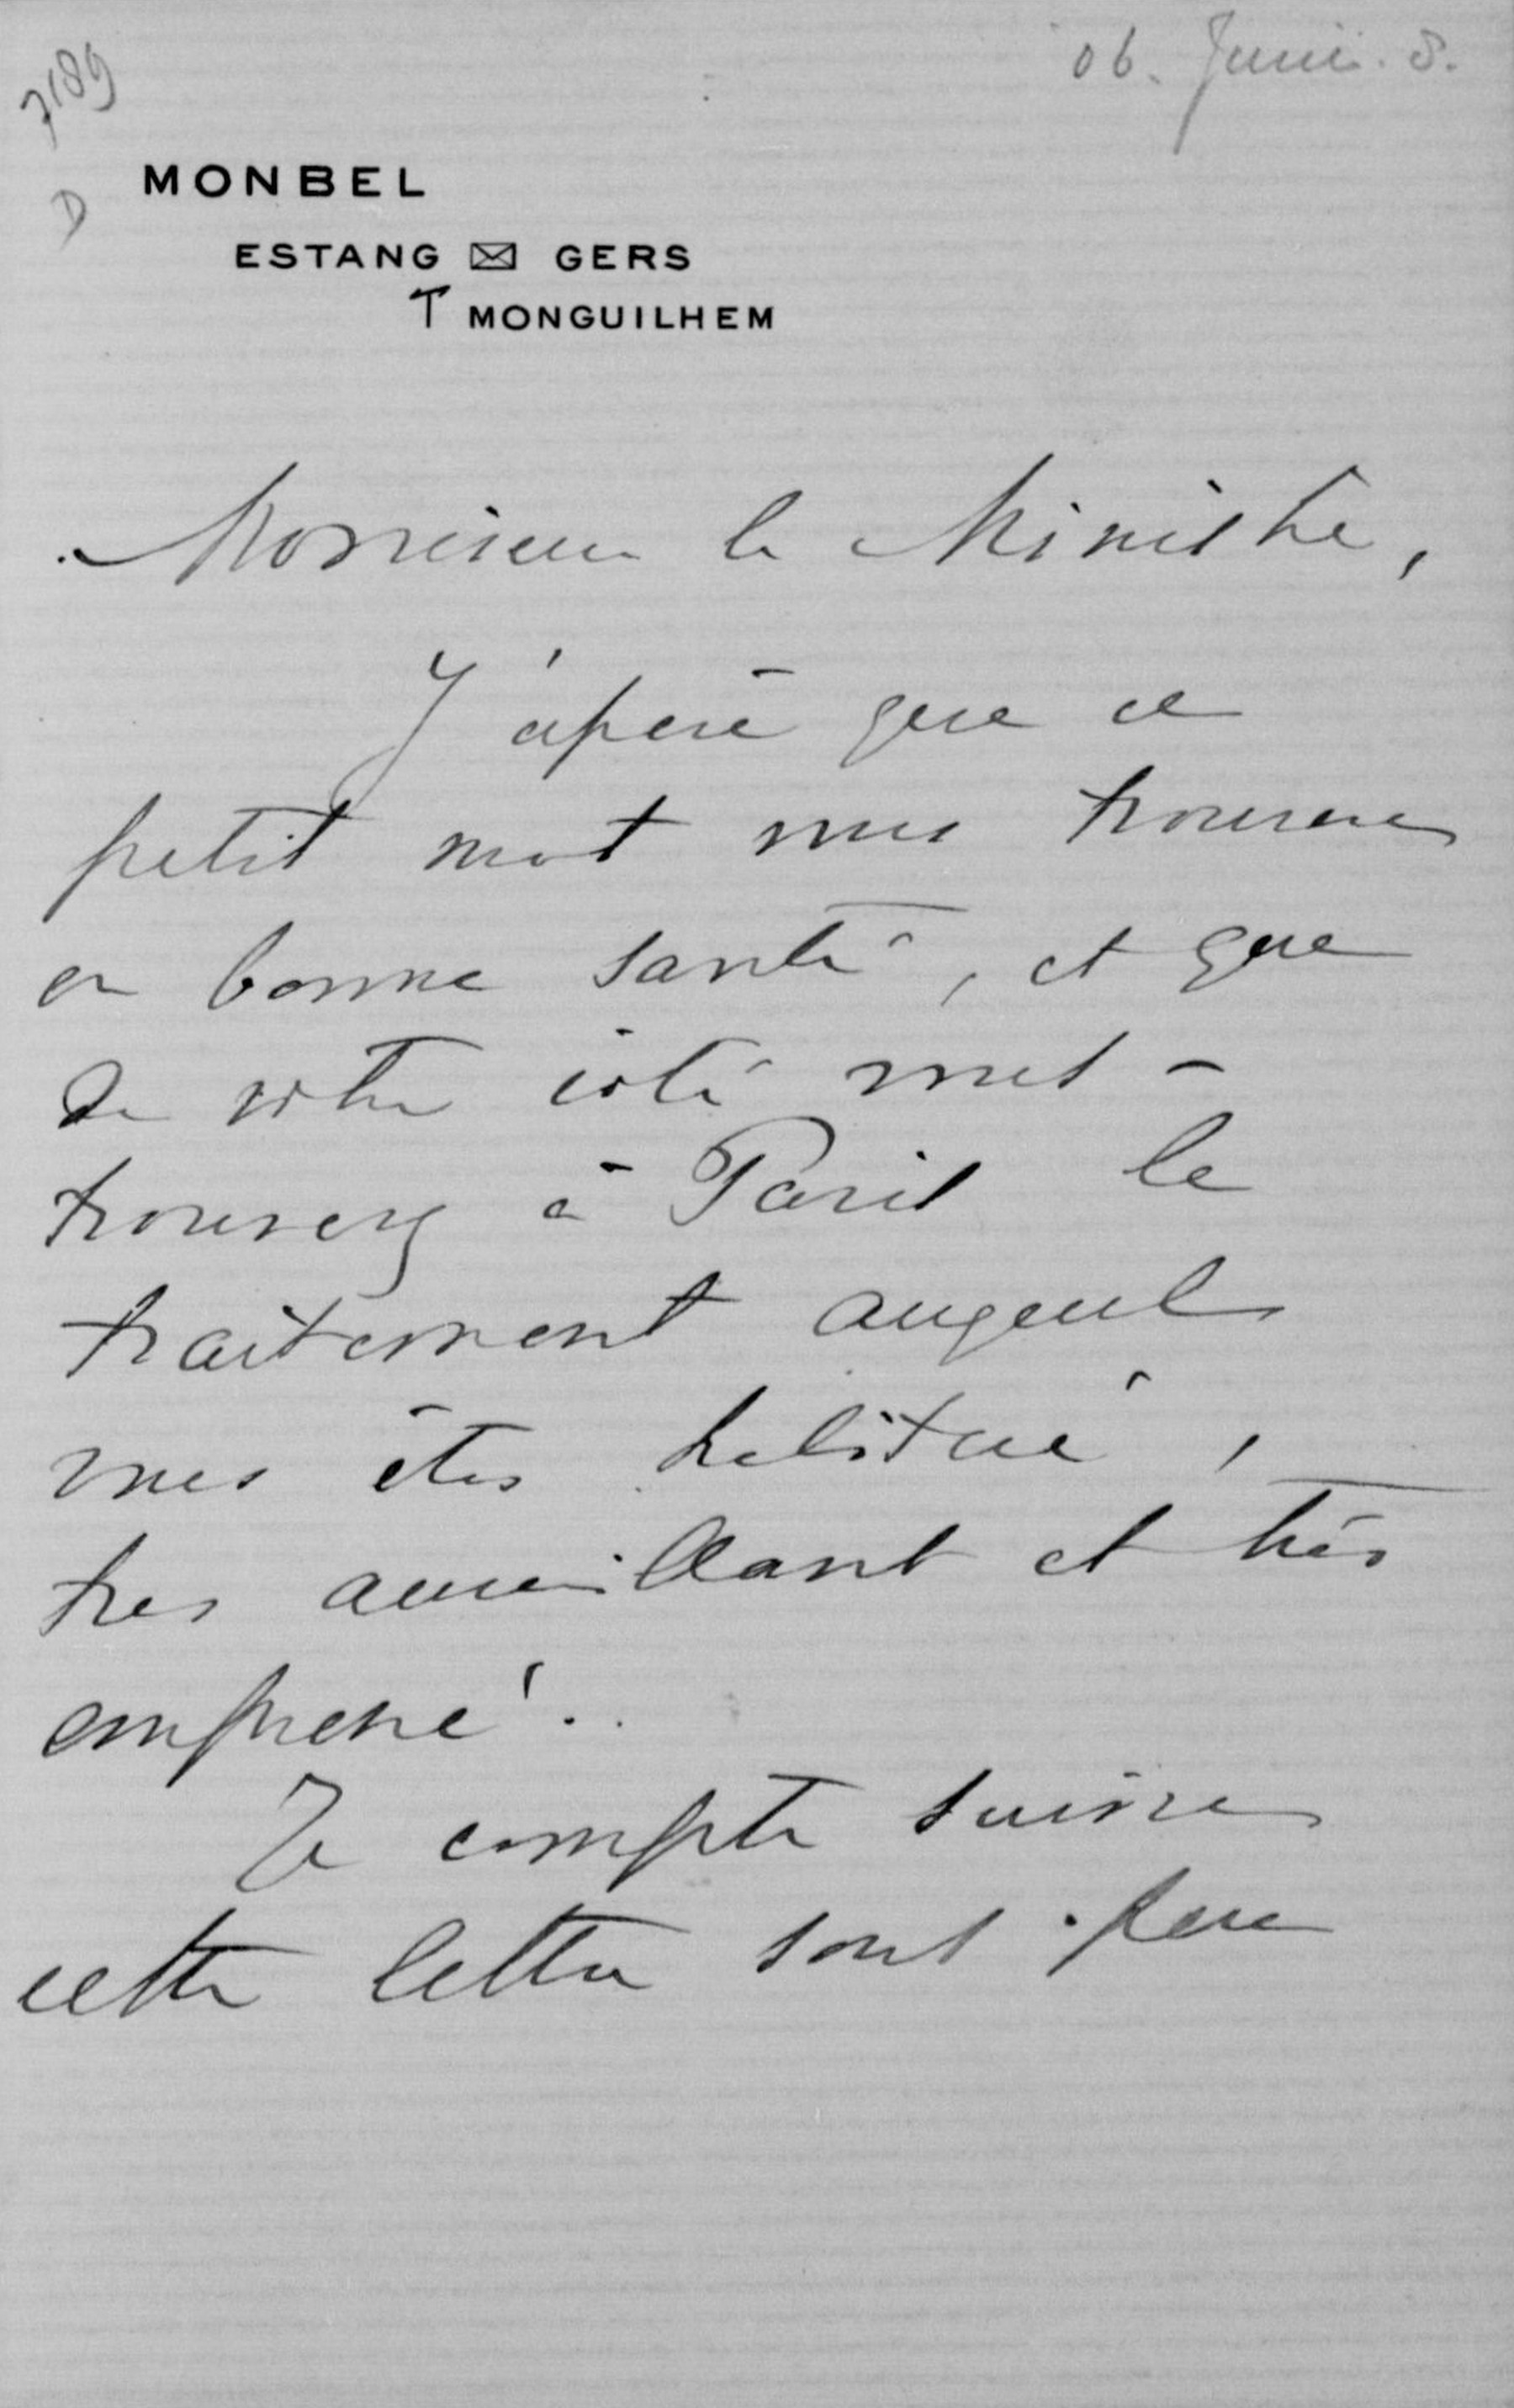 06. Juni. 8.
7189
D
MONBEL
ESTANG GERS
T MONGUILHEM
Monsieur le Ministre,
J'espère que ce
petit mot vous trouvera
en bonne santé, et que
de votre côté vous -
trouverez à Paris le
traitement auquel
vous êtes habitué,
très accueillant et très
empressé.
Je compte suivre
cette lettre sous peu